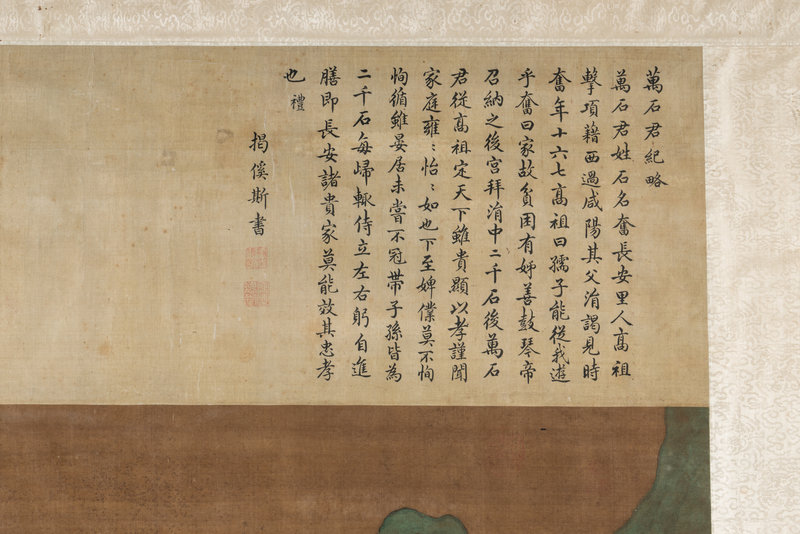 萬石君紀略
萬石君姓石名奮長安里人髙祖
擊項藉西過咸陽其父洧謁見時
奮年十六七髙祖曰孺子能從我遊
乎奮曰家故貧困有姊善鼓琴帝
召納之後宮拜洧中二千石後萬石
君從髙祖定天下雖貴顯以孝謹聞
家庭雍〻怡〻如也下至婢僕莫不恂
恂循雖晏居未嘗不冠帶子孫皆為
二千石每歸輙侍立左右躬自進
膳即長安諸貴家莫能效其忠孝
也禮
揭傒斯書